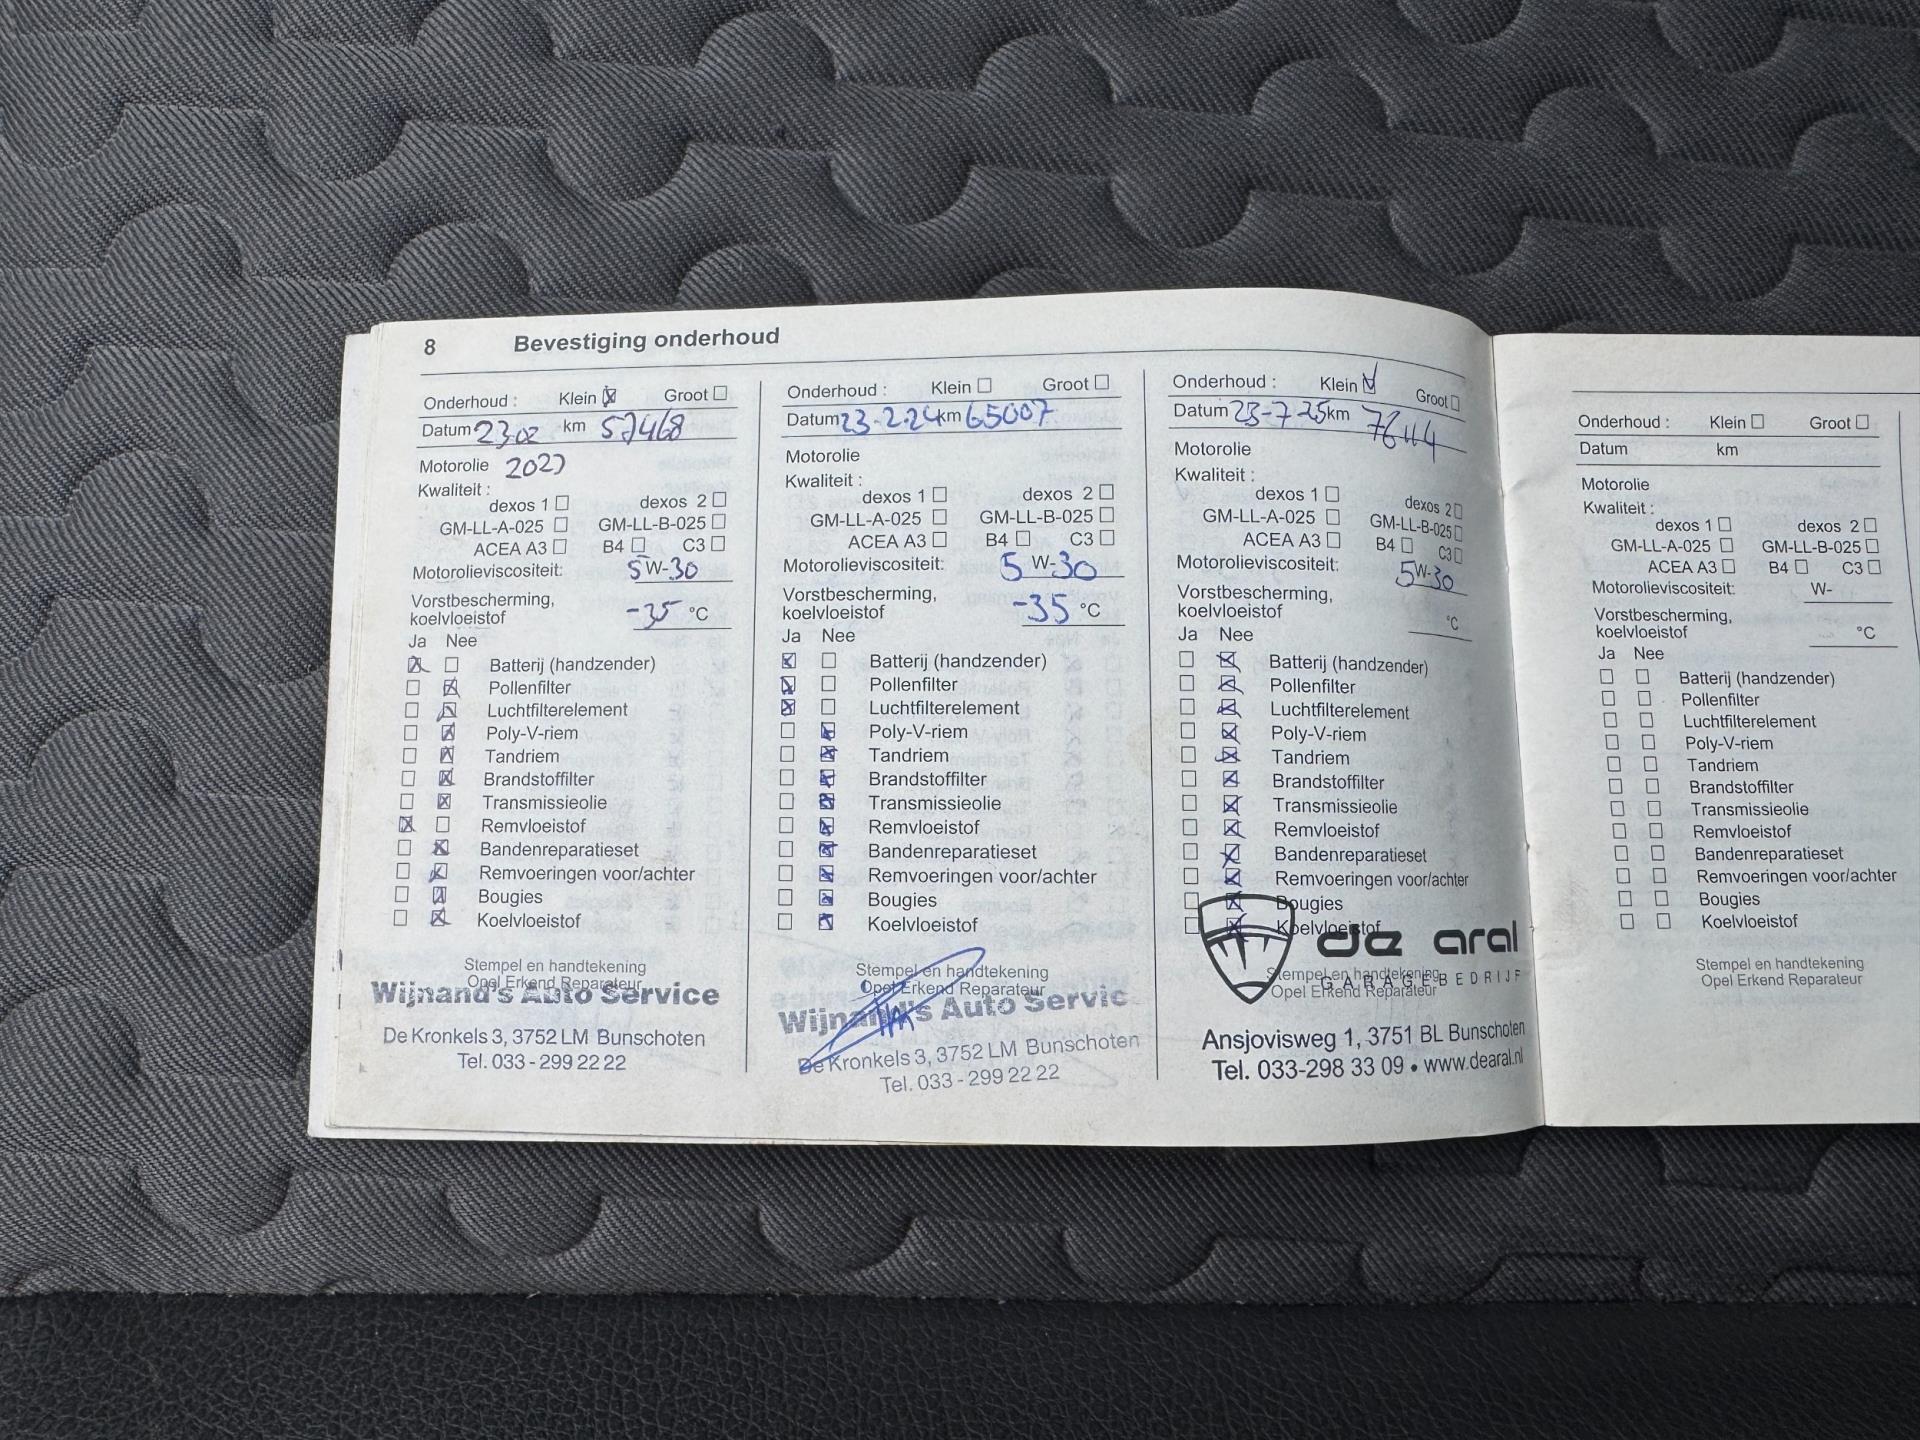 8 Bevestiging onderhoud
Onderhoud : Klein ☒ Groot ☐
Datum 23 02 km 57468
Motorolie 2023
Kwaliteit :
dexos 1 ☐ dexos 2 ☐
GM-LL-A-025 ☐ GM-LL-B-025 ☐
ACEA A3 ☐ B4 ☐ C3 ☐
Motorolieviscositeit: 5 W-30
Vorstbescherming,
koelvloeistof -35 °C
Ja Nee
☒ ☐ Batterij (handzender)
☐ ☒ Pollenfilter
☐ ☒ Luchtfilterelement
☐ ☒ Poly-V-riem
☐ ☒ Tandriem
☐ ☒ Brandstoffilter
☐ ☒ Transmissieolie
☒ ☐ Remvloeistof
☐ ☒ Bandenreparatieset
☐ ☒ Remvoeringen voor/achter
☐ ☒ Bougies
☐ ☒ Koelvloeistof
Stempel en handtekening
Opel Erkend Reparateur
Wijnand's Auto Service
De Kronkels 3, 3752 LM Bunschoten
Tel. 033 - 299 22 22
Onderhoud : Klein ☐ Groot ☐
Datum 23-2-24 km 65007
Motorolie
Kwaliteit :
dexos 1 ☐ dexos 2 ☐
GM-LL-A-025 ☐ GM-LL-B-025 ☐
ACEA A3 ☐ B4 ☐ C3 ☐
Motorolieviscositeit: 5 W-30
Vorstbescherming,
koelvloeistof -35 °C
Ja Nee
☒ ☐ Batterij (handzender)
☒ ☐ Pollenfilter
☒ ☐ Luchtfilterelement
☐ ☒ Poly-V-riem
☐ ☒ Tandriem
☐ ☒ Brandstoffilter
☐ ☒ Transmissieolie
☐ ☒ Remvloeistof
☐ ☒ Bandenreparatieset
☐ ☒ Remvoeringen voor/achter
☐ ☒ Bougies
☐ ☒ Koelvloeistof
Stempel en handtekening
Opel Erkend Reparateur
Wijnand's Auto Servic
De Kronkels 3, 3752 LM Bunschoten
Tel. 033 - 299 22 22
Onderhoud : Klein ☒ Groot ☐
Datum 23-7-25 km
Motorolie
Kwaliteit :
dexos 1 ☐ dexos 2 ☐
GM-LL-A-025 ☐ GM-LL-B-025 ☐
ACEA A3 ☐ B4 ☐ C3 ☐
Motorolieviscositeit: 5 W-30
Vorstbescherming,
koelvloeistof °C
Ja Nee
☐ ☒ Batterij (handzender)
☐ ☒ Pollenfilter
☐ ☒ Luchtfilterelement
☐ ☒ Poly-V-riem
☐ ☒ Tandriem
☐ ☒ Brandstoffilter
☐ ☒ Transmissieolie
☐ ☒ Remvloeistof
☐ ☒ Bandenreparatieset
☐ ☒ Remvoeringen voor/achter
☐ ☒ Bougies
☐ ☒ Koelvloeistof
de aral
Stempel en handtekening
GARAGEBEDRIJF
Opel Erkend Reparateur
Ansjovisweg 1, 3751 BL Bunschoten
Tel. 033-298 33 09 • www.dearal.nl
Onderhoud : Klein ☐ Groot ☐
Datum km
Motorolie
Kwaliteit :
dexos 1 ☐ dexos 2 ☐
GM-LL-A-025 ☐ GM-LL-B-025 ☐
ACEA A3 ☐ B4 ☐ C3 ☐
Motorolieviscositeit: W-
Vorstbescherming,
koelvloeistof °C
Ja Nee
☐ ☐ Batterij (handzender)
☐ ☐ Pollenfilter
☐ ☐ Luchtfilterelement
☐ ☐ Poly-V-riem
☐ ☐ Tandriem
☐ ☐ Brandstoffilter
☐ ☐ Transmissieolie
☐ ☐ Remvloeistof
☐ ☐ Bandenreparatieset
☐ ☐ Remvoeringen voor/achter
☐ ☐ Bougies
☐ ☐ Koelvloeistof
Stempel en handtekening
Opel Erkend Reparateur